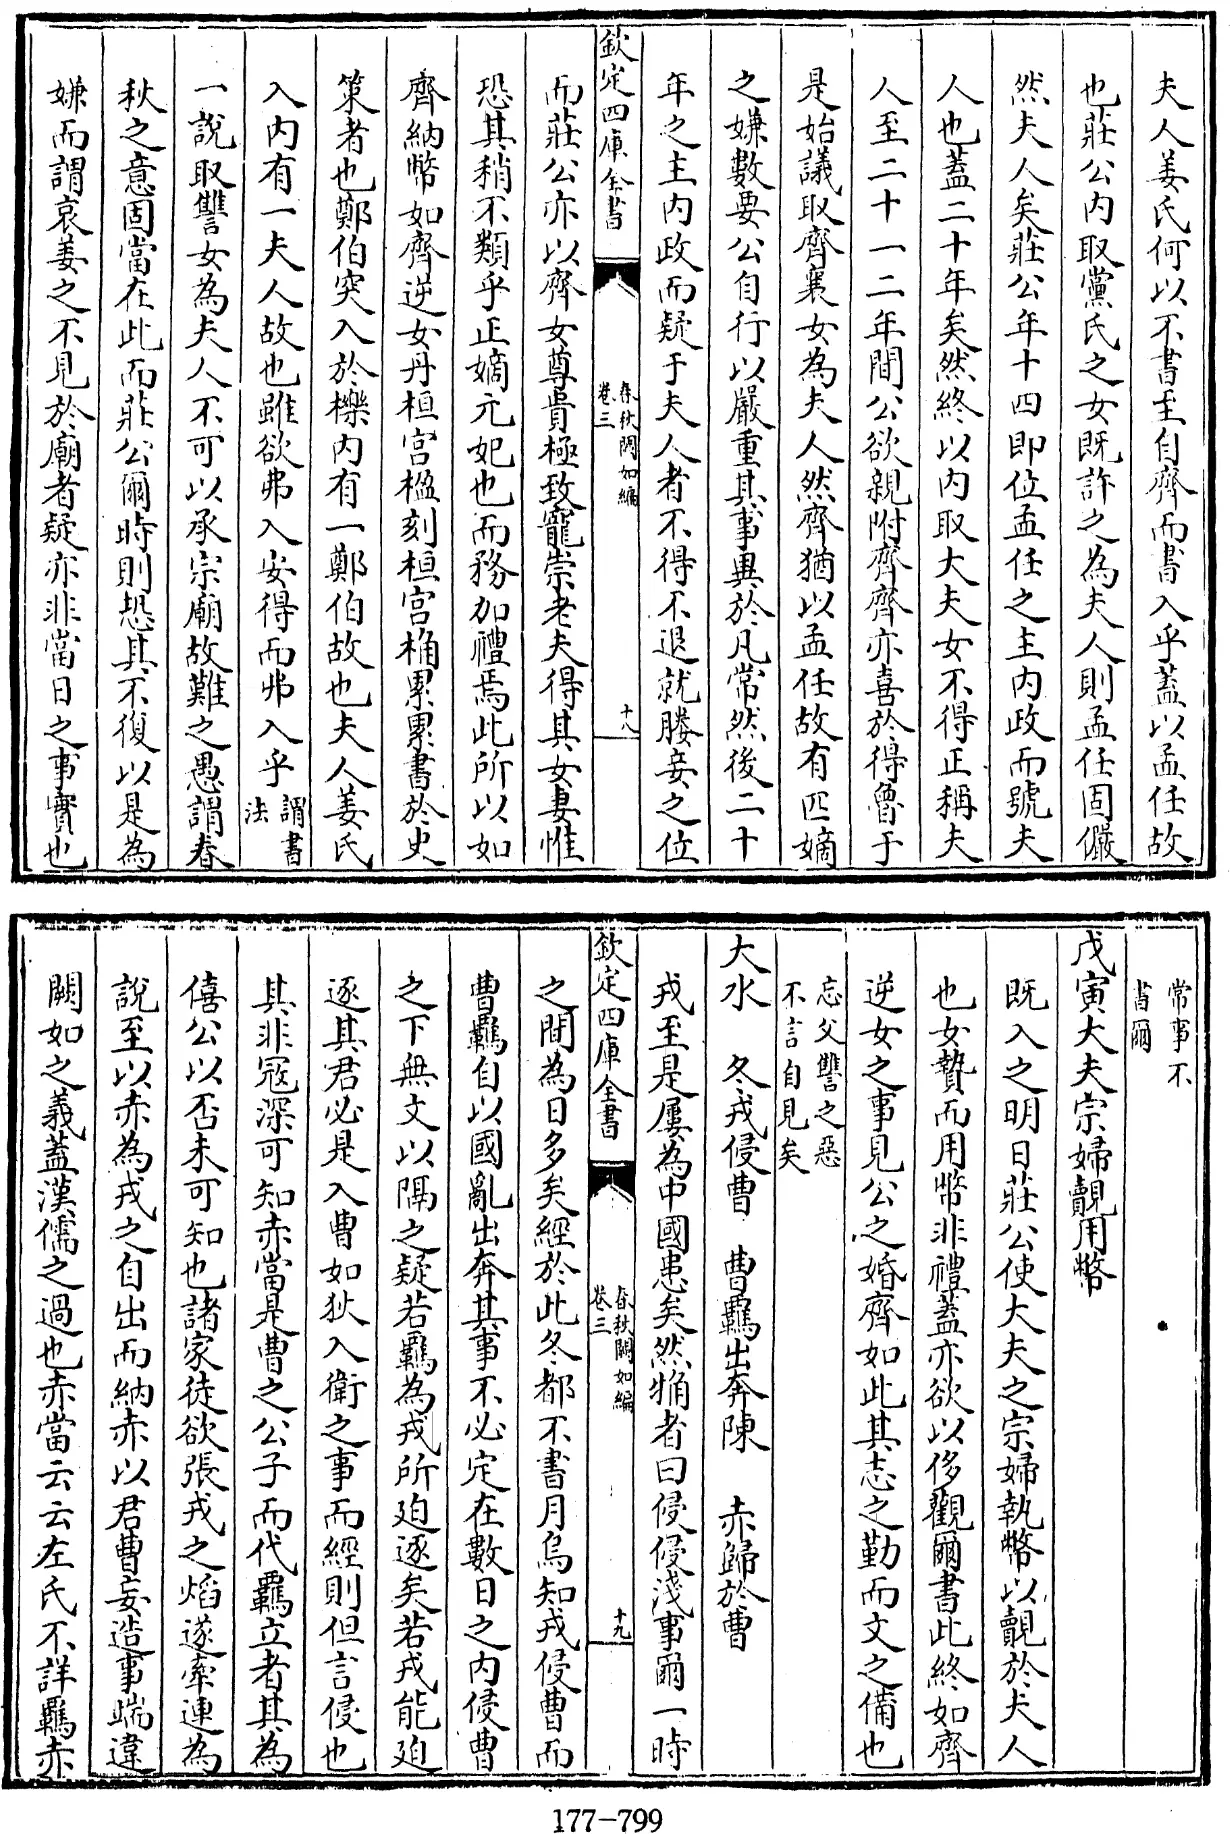 夫人姜氏何以不書至自齊而書入乎蓋以孟任故
也莊公内取黨氏之女既許之為夫人則孟任固儼
然夫人矣莊公年十四即位孟任之主内政而號夫
人也蓋二十年矣然終以内取大夫女不得正稱夫
人至二十一二年間公欲親附齊齊亦喜於得魯于
是始議取齊襄女為夫人然齊猶以孟任故有匹嫡
之嫌數要公自行以嚴重其事異於凡常然後二十
年之主内政而疑于夫人者不得不退就媵妾之位
欽定四庫全書
春秋闕如編
卷三
十八
而莊公亦以齊女尊貴極致寵崇老夫得其女妻惟
恐其稍不類乎正嫡元妃也而務加禮焉此所以如
齊納幣如齊逆女丹桓宫楹刻桓宫桷累累書於史
策者也鄭伯突入於櫟内有一鄭伯故也夫人姜氏
入内有一夫人故也雖欲弗入安得而弗入乎
謂書
法
一說取讐女為夫人不可以承宗廟故難之愚謂春
秋之意固當在此而莊公爾時則恐其不復以是為
嫌而謂哀姜之不見於廟者疑亦非當日之事實也
常事不
書爾
戊寅大夫宗婦覿用幣
既入之明日莊公使大夫之宗婦執幣以覿於夫人
也女贄而用幣非禮蓋亦欲以侈觀爾書此終如齊
逆女之事見公之婚齊如此其志之勤而文之備也
忘父讐之惡
不言自見矣
大水　冬戎侵曹　曹羈出奔陳　赤歸於曹
戎至是屢為中國患矣然觕者曰侵侵淺事爾一時
欽定四庫全書
春秋闕如編
卷三
十九
之間為日多矣經於此冬都不書月烏知戎侵曹而
曹羈自以國亂出奔其事不必定在數日之内侵曹
之下無文以隔之疑若羈為戎所廹逐矣若戎能廹
逐其君必是入曹如狄入衛之事而經則但言侵也
其非冦深可知赤當是曹之公子而代羈立者其為
僖公以否未可知也諸家徒欲張戎之熖遂牽連為
說至以赤為戎之自出而納赤以君曹妄造事端違
闕如之義蓋漢儒之過也赤當云云左氏不詳羈赤
177-799